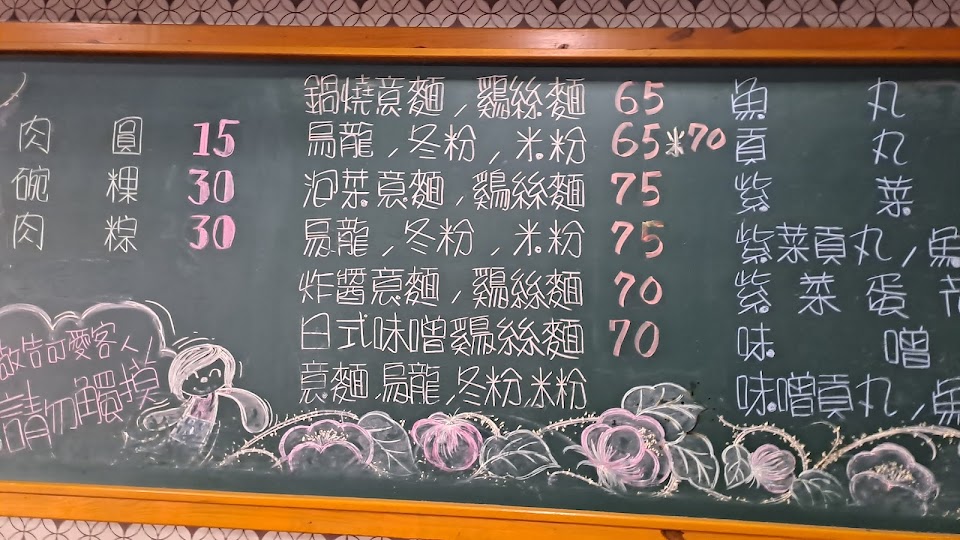 肉圓 15
碗粿 30
肉粽 30
敬告可愛客人,
請勿觸摸
鍋燒意麵,鷄絲麵 65
烏龍,冬粉,米粉 65 米70
泡菜意麵,鷄絲麵 75
烏龍,冬粉,米粉 75
炸醬意麵,鷄絲麵 70
日式味噌鷄絲麵 70
意麵,烏龍,冬粉,米粉
魚丸
貢丸
紫菜
紫菜貢丸,魚
紫菜蛋花
味噌
味噌貢丸,魚